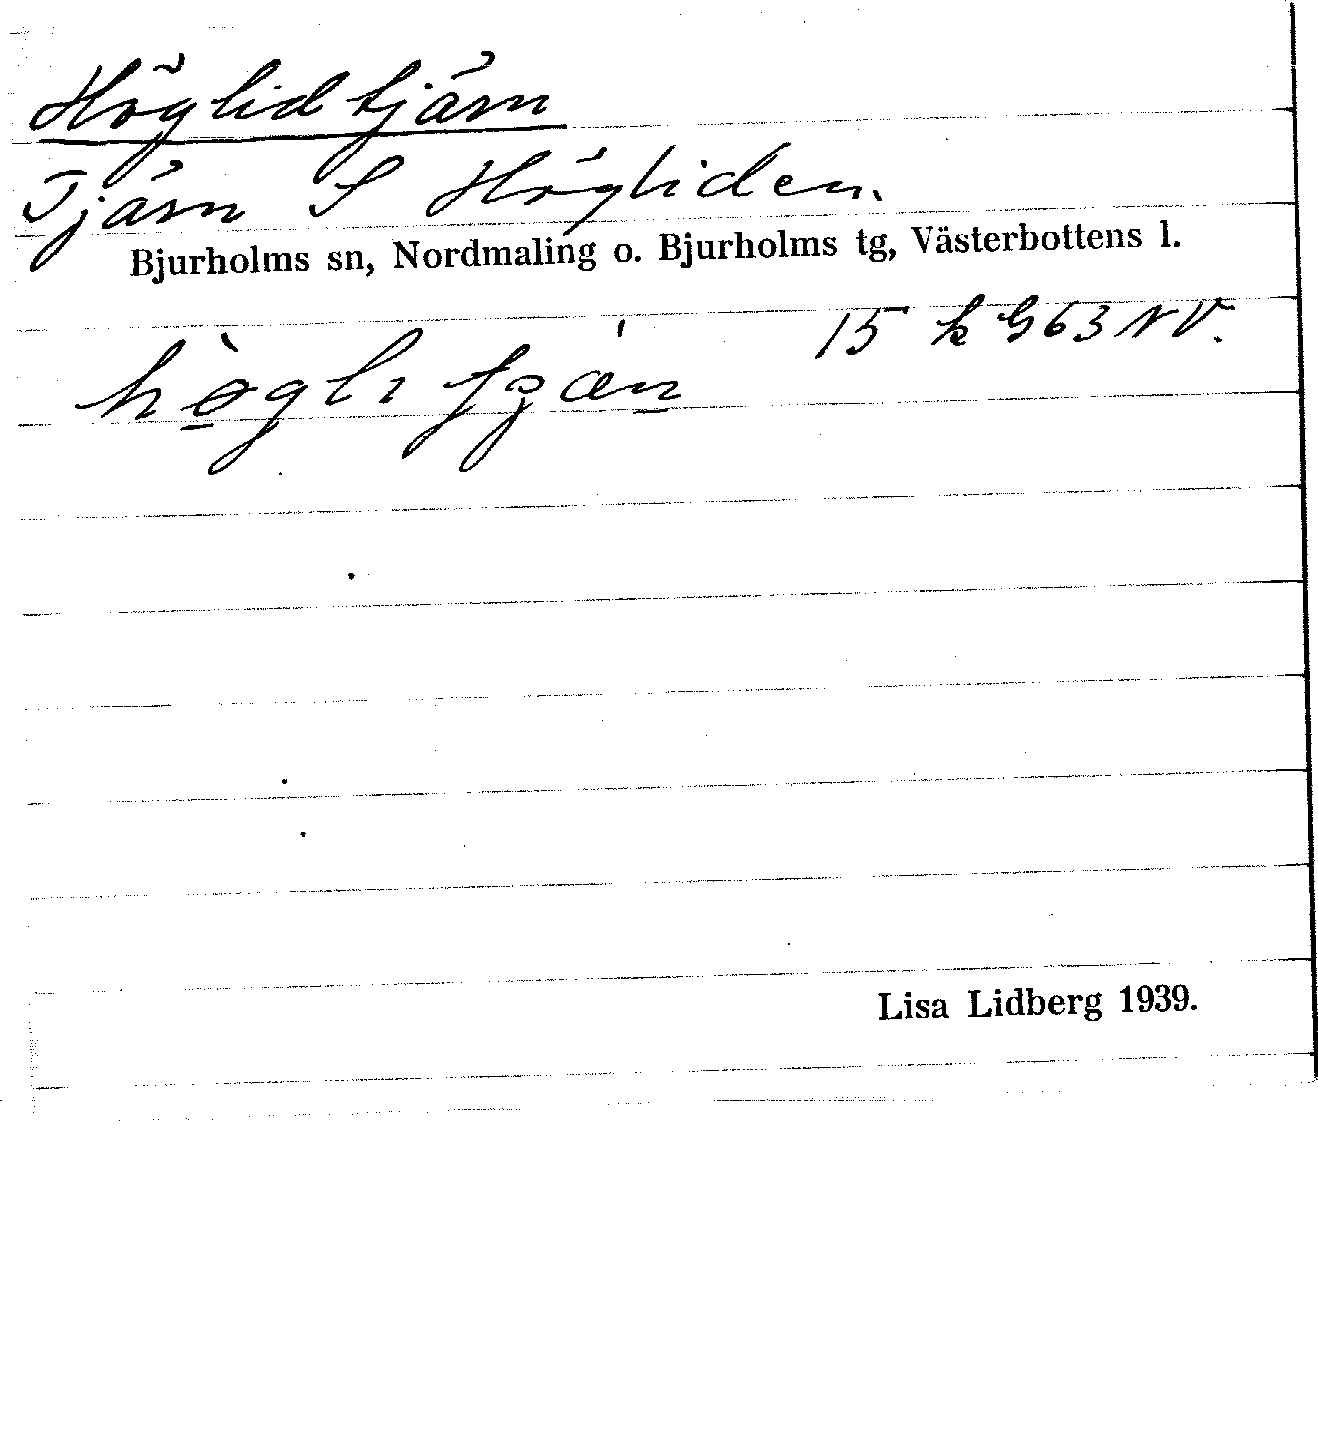 Höglidtjärn
Tjärn S Högliden.
Bjurholms sn, Nordmaling o. Bjurholms tg, Västerbottens l.
15 k G63 NV.
Lisa Lidberg 1939.